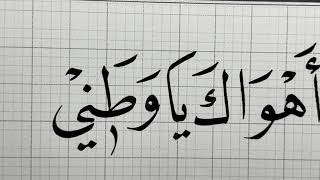 أَهْوَاكَ يَا وَطَنِيْ